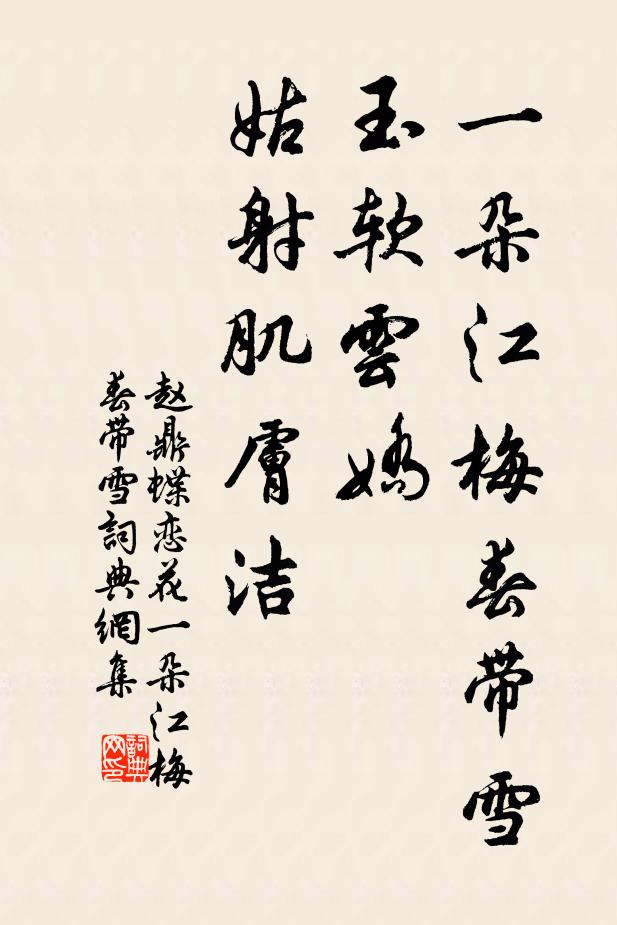 一朵江梅春带雪
玉软雲嬌
姑射肌膚洁
赵鼎蝶恋花一朵江梅
春带雪詞典網集
詞典网印